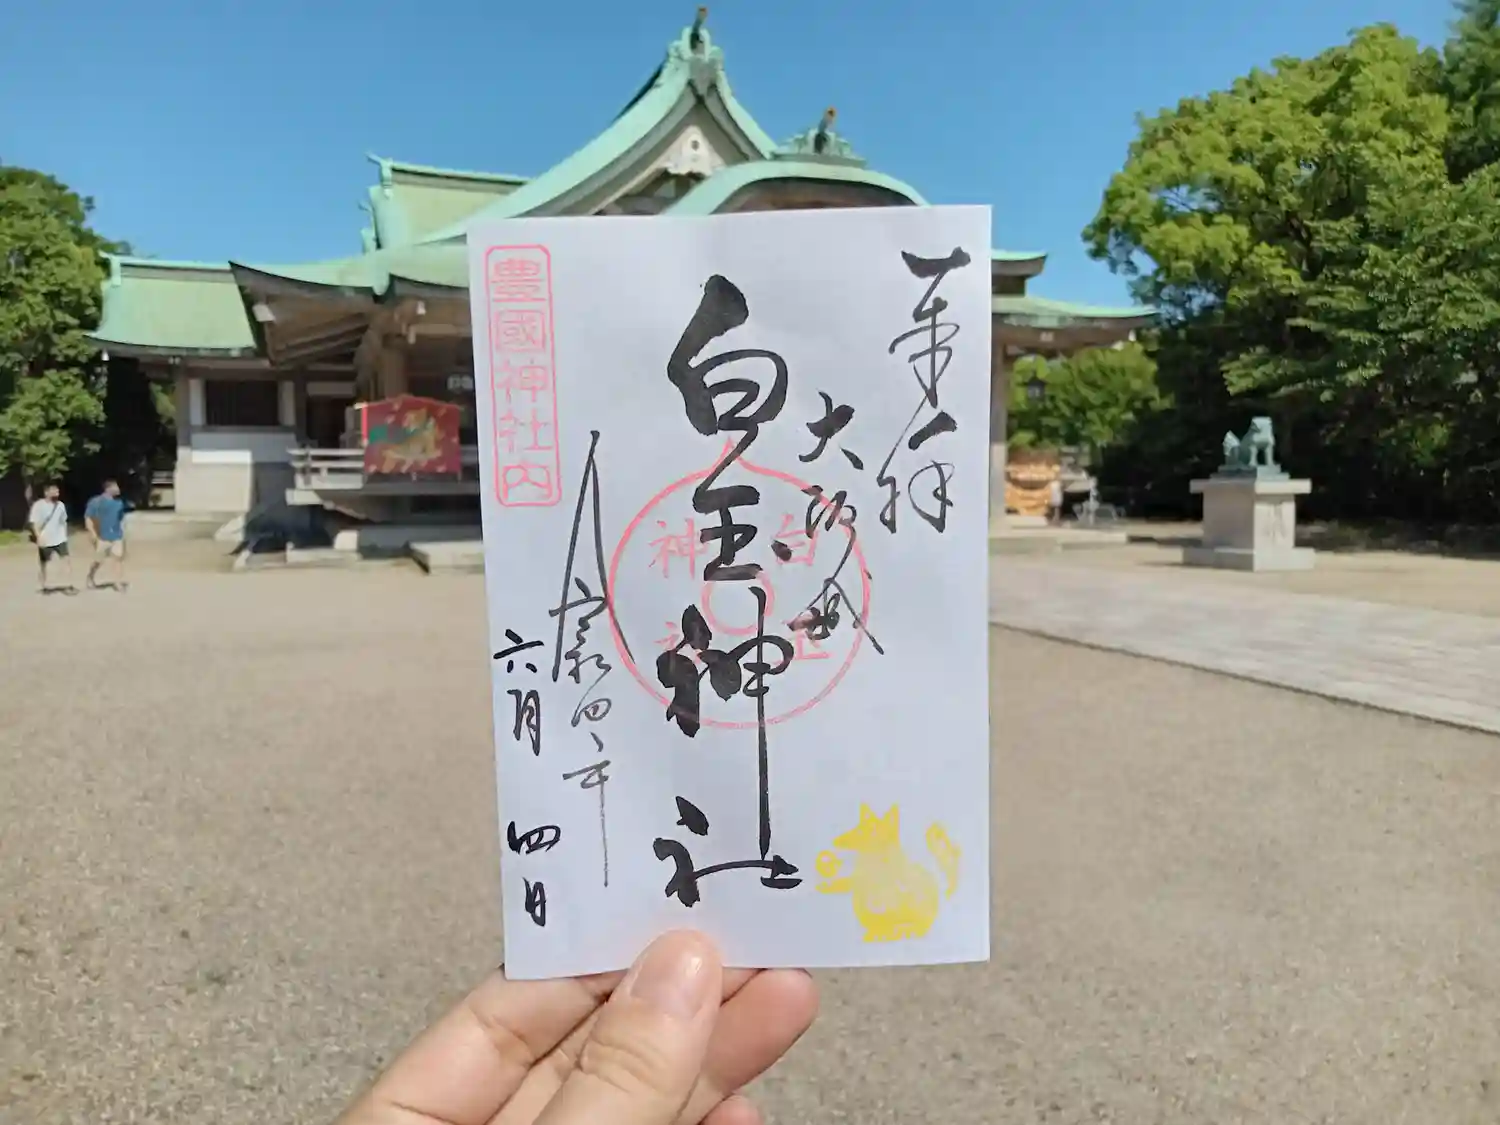 奉拝
大阪城
白玉神社
白玉
神社
令和四年
六月四日
豊國神社内